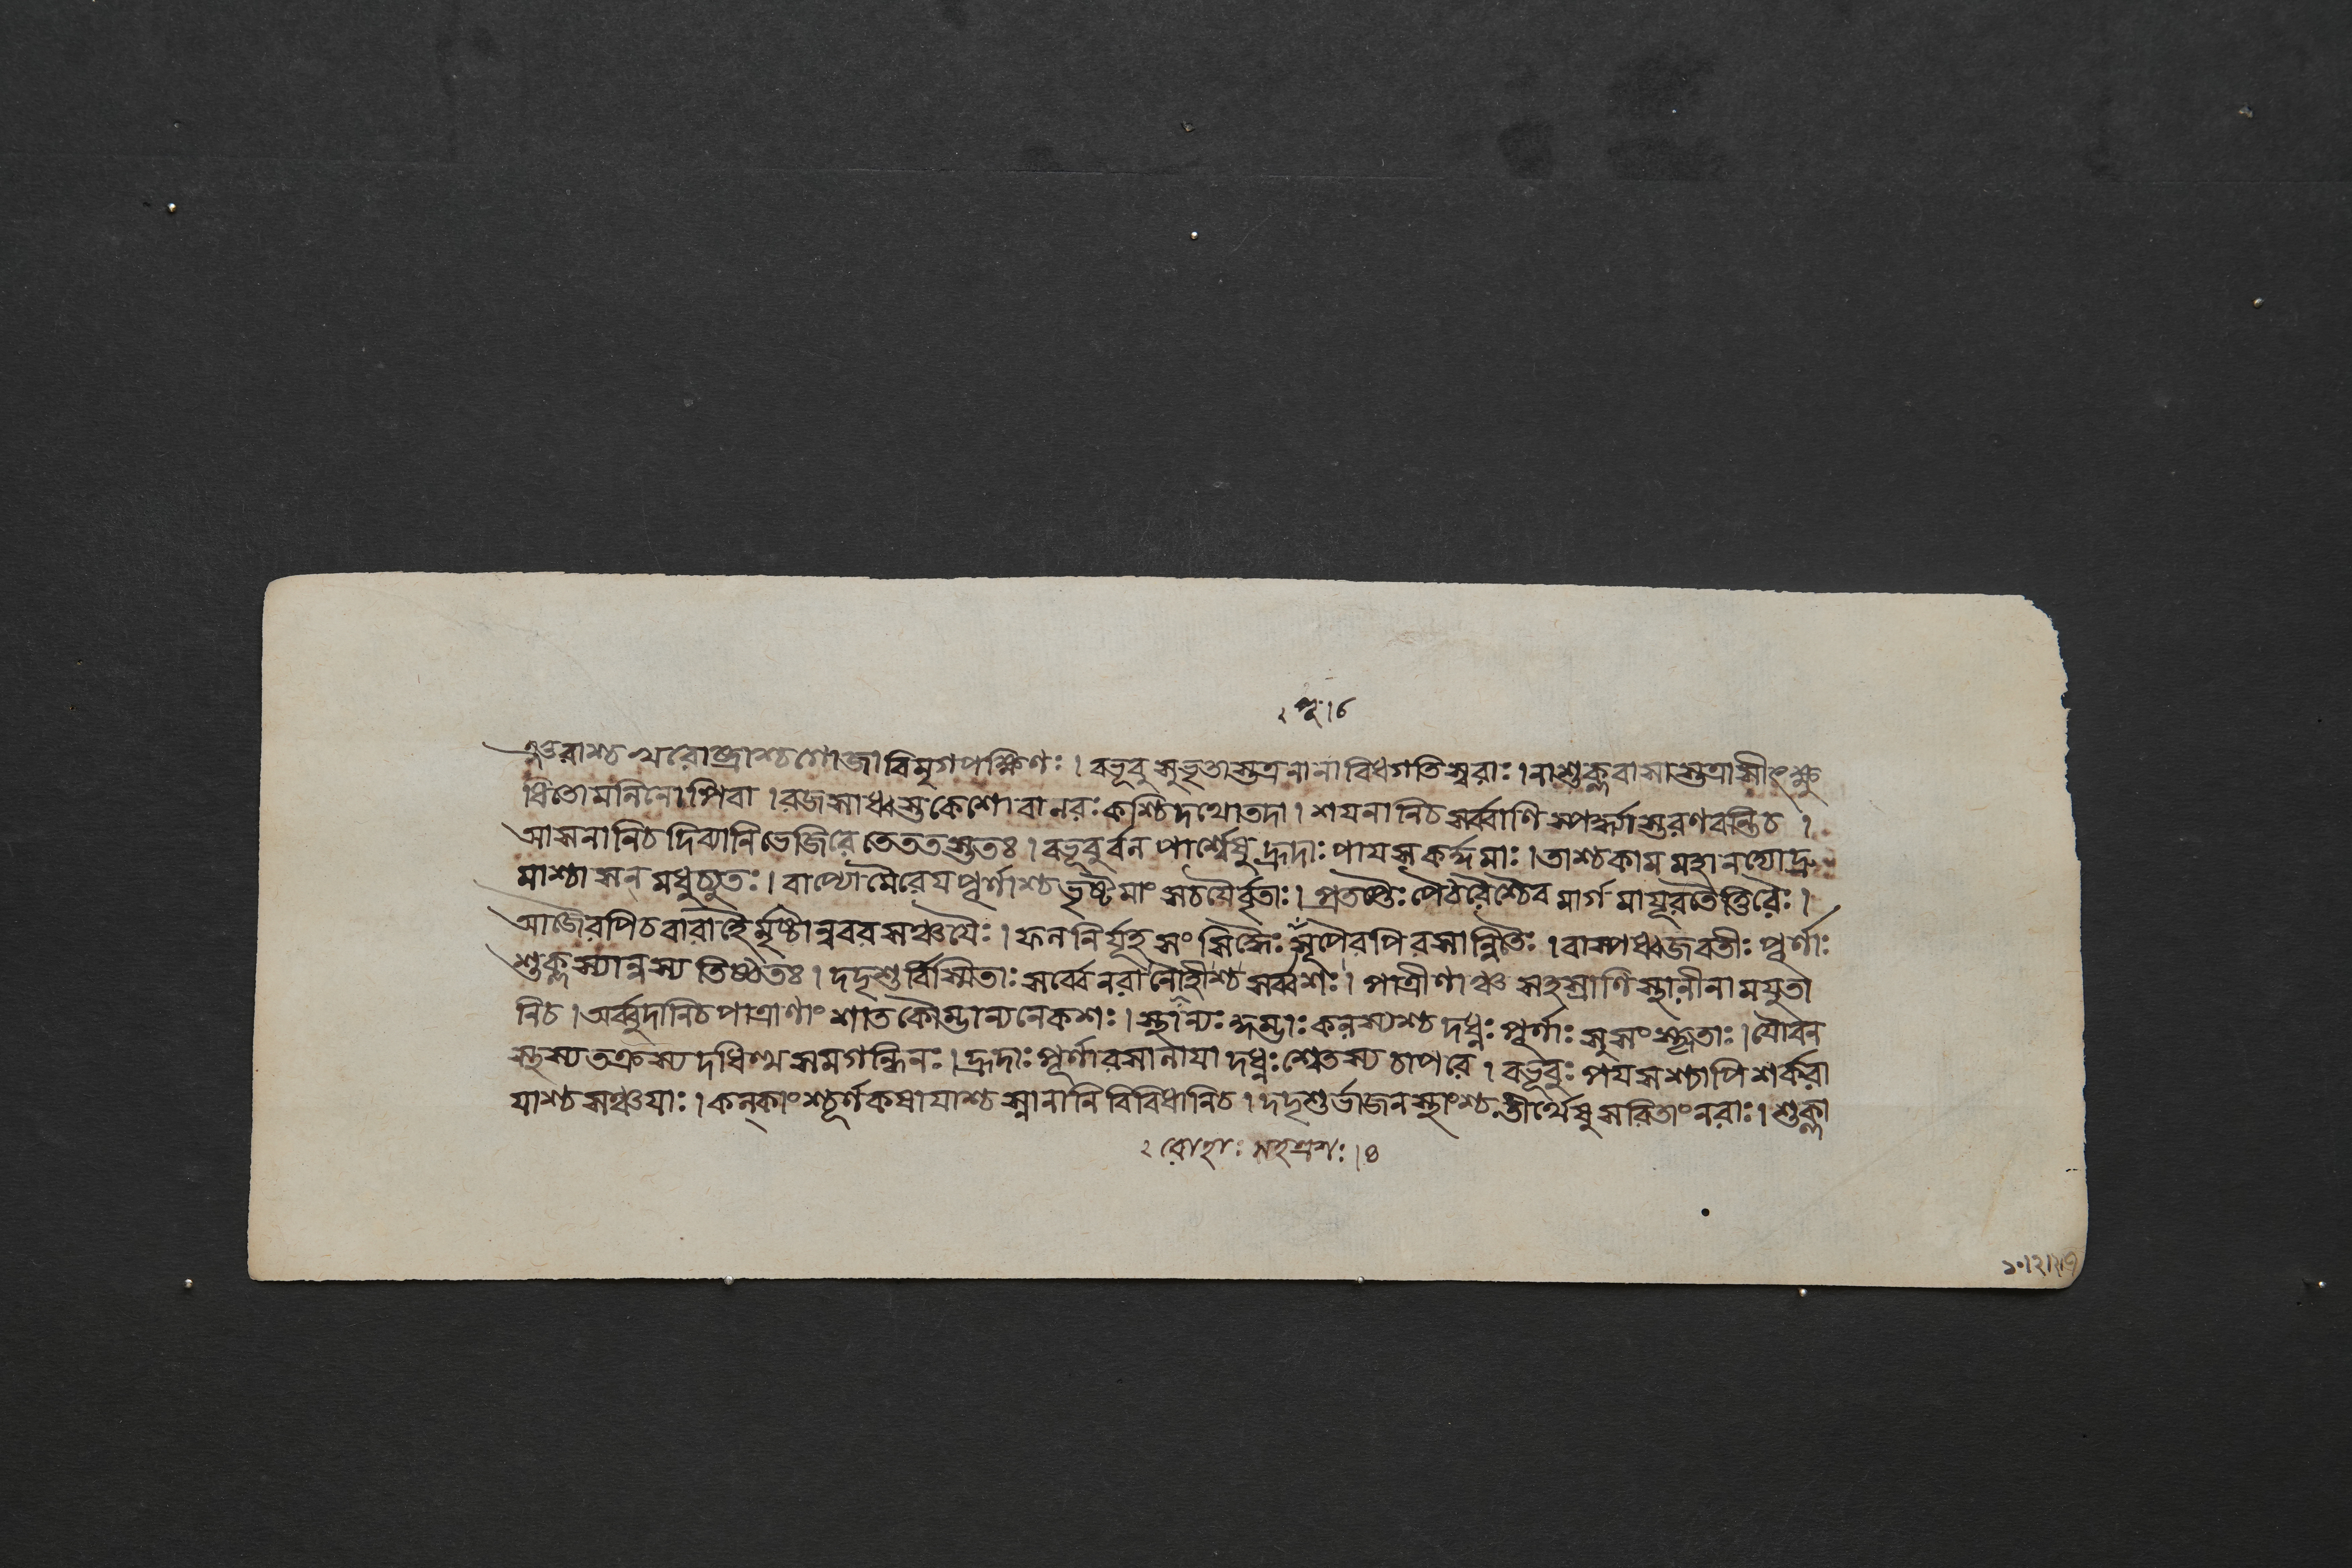 ২ পূ ।৬
ঞ্জরাশ্চ খরোষ্ট্রাশ্চ গোজাবিমৃগপক্ষিণঃ । বভূবু সুভৃতাস্তত্রনানাবিধগতিস্বরাঃ । নাশুক্লবাসাস্তত্রাসীৎ ক্ষু
ধিতোমলিনোপিবা । রজসাধ্বস্তকেশোবানরঃকশ্চিদথোতদা । শয়নানিচসর্ব্বাণিস্পর্দ্ধ্যাস্তরণবন্তিচ ।
আসনানিচদিব্যানিভেজিরেতেততস্ততঃ । বভূবুর্বনপার্শ্বেষুহ্রদাঃপায়সকর্দ্দমাঃ । তাশ্চকামমহানদ্যোদ্রু
মাশ্চাসন্ মধুচ্যুতঃ । বাপ্যোমৈরেয়পূর্ণাশ্চভৃষ্টমাংসচয়ৈর্বৃতাঃ । প্রতপ্তৈঃপৈঠরৈশ্চৈবমার্গমায়ূরতৈত্তিরৈঃ ।
আজৈরপিচবারাহৈর্মৃষ্টান্নবরসঞ্চয়ৈঃ । ফলনির্যূহসংসিদ্ধৈঃসূপৈরপিরসান্বিতৈঃ । বাস্পধ্বজবতীঃপূর্ণাঃ
শুক্লস্যান্নস্যতিষ্ঠতঃ । দদৃশুর্বিস্মিতাঃসর্ব্বেনরালৌহীশ্চসর্ব্বশঃ । পাত্রীণাঞ্চসহস্রাণিস্থালীনামযুতা
নিচ । অর্ব্বুদানিচপাত্রাণাংশাতকৌম্ভান্যনেকশঃ । স্থাল্যঃকুম্ভাঃকলস্যশ্চদধ্নঃপূর্ণাঃসুসংস্কৃতাঃ । যৌবন
স্থস্যতক্রস্যদধিত্থসমগন্ধিনঃ । হ্রদাঃপূর্ণারসালায়াদধ্নঃশ্বেতস্যচাপরে । বভূবুঃপয়সশ্চাপিশর্করা
য়াশ্চসঞ্চয়াঃ । কল্কাংশ্চূর্ণকষায়াশ্চস্নানানিবিবিধানিচ । দদৃশুর্ভাজনস্থাংশ্চতীর্থেষুসরিতাংনরাঃ । শুক্লা
২ রোহাঃ সহস্রশঃ ।৪